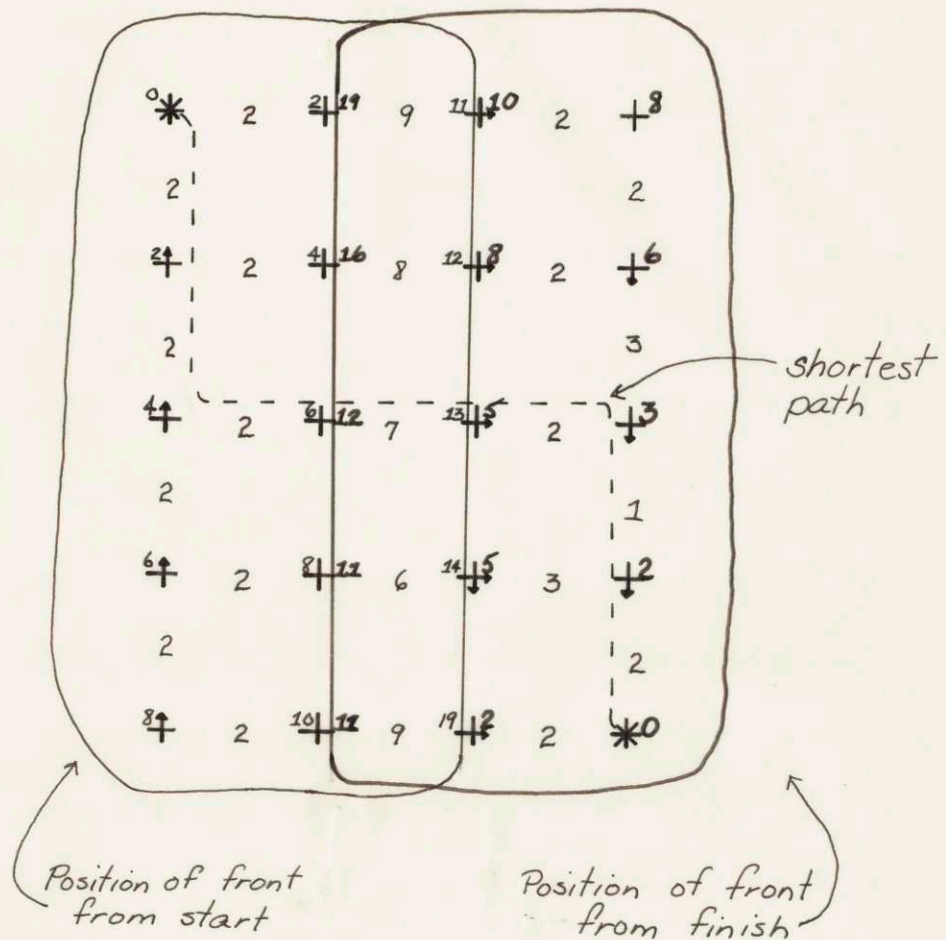 0 2 2 19 9 11 10 2 8
2 2
2 2 4 16 8 12 8 2 6
2 3
shortest
path
4 2 6 12 7 13 5 2 3
2 1
6 2 8 11 6 14 5 3 2
2 2
8 2 10 11 9 19 2 2 0
Position of front
from start
Position of front
from finish